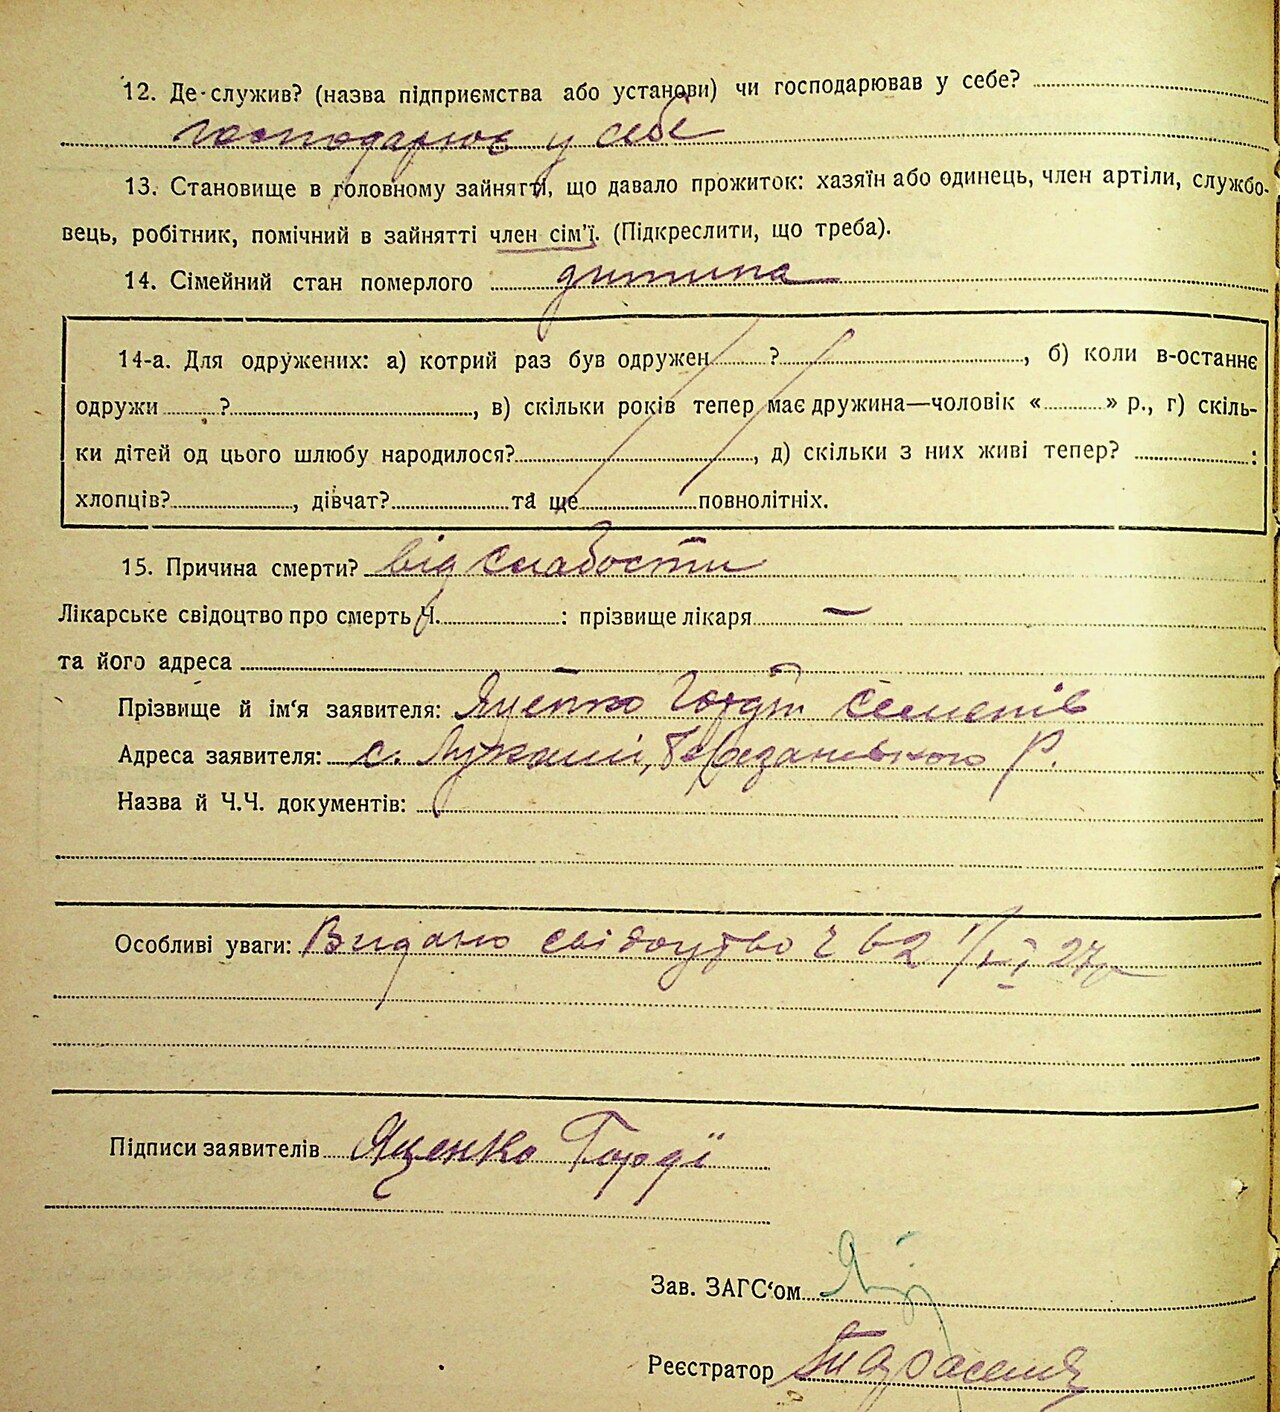 12. Де служив? (назва підприємства або установи) чи господарював у себе?
господарює у себе
13. Становище в головному зайнятті, що давало прожиток: хазяїн або одинець, член артіли, службо-
вець, робітник, помічний в зайнятті член сім'ї. (Підкреслити, що треба).
14. Сімейний стан померлого дитина
14-а. Для одружених: а) котрий раз був одружен ?, б) коли в-останнє
одружи ?, в) скільки років тепер має дружина—чоловік « » р., г) скіль-
ки дітей од цього шлюбу народилося?, д) скільки з них живі тепер? :
хлопців?, дівчат? та ще повнолітніх.
15. Причина смерти? від слабости
Лікарське свідоцтво про смерть Ч. : прізвище лікаря —
та його адреса —
Прізвище й ім'я заявителя: Яценко Гордій Семенів
Адреса заявителя: с. Лукаші, Березанського Р.
Назва й Ч.Ч. документів:
Особливі уваги: Видано свідоцтво Ч 62 27р
Підписи заявителів Яценко Гордї
Зав. ЗАГС'ом
Реєстратор